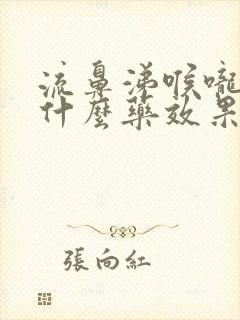 流鼻涕喉嚨
什麼藥效果
張向紅